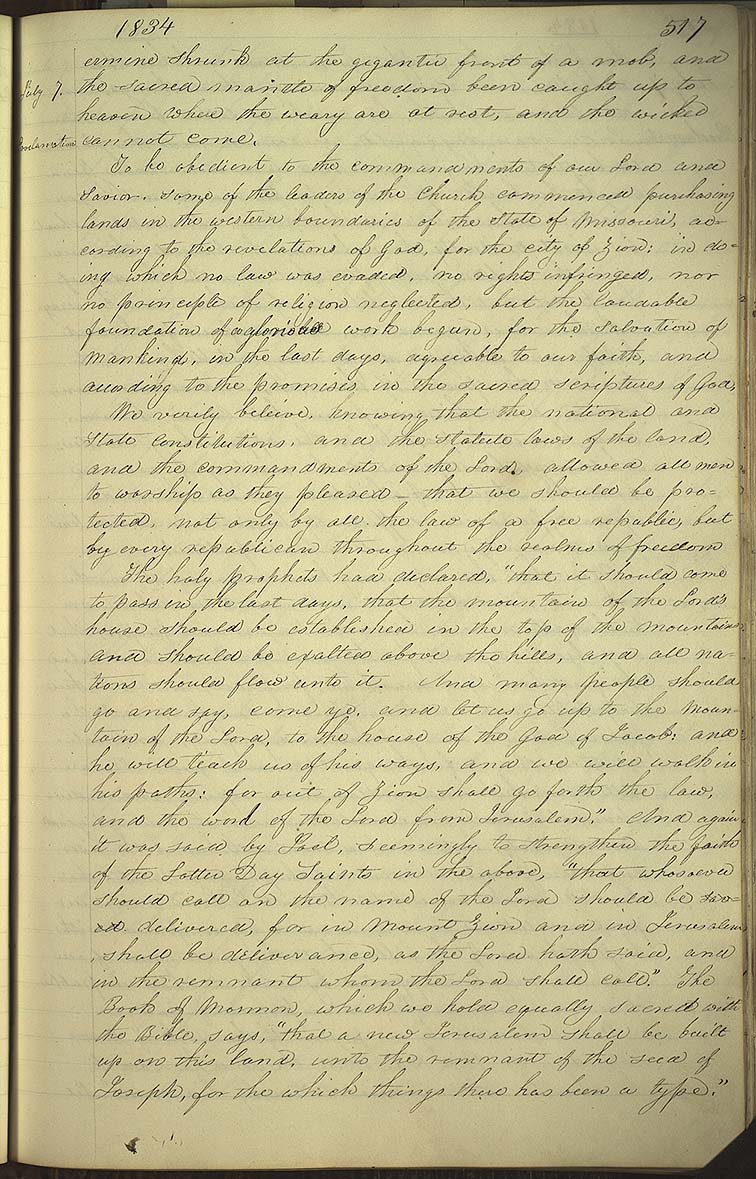 1834 517
ermine shrunk at the gigantic front of a mob, and
July 7. the sacred mantle of freedom been caught up to
heaven where the weary are at rest, and the wicked
Proclamation cannot come.
To be obedient to the commandments of our Lord and
Savior, some of the leaders of the Church commenced purchasing
lands in the western boundaries of the State of Missouri, ac-
cording to the revelations of God, for the city of Zion: in do-
ing which no law was evaded, no rights infringed, nor
no principle of religion neglected, but the laudable
foundation of a glorious work begun, for the salvation of
mankind, in the last days, agreeable to our faith, and
according to the promises in the sacred scriptures of God,
We verily beleive, knowing that the national and
State constitutions, and the statute laws of the land,
and the commandments of the Lord, allowed all men
to worship as they pleased — that we should be pro-
tected, not only by all the law of a free republic, but
by every republican throughout the realms of freedom
The holy prophets had declared, "that it should come
to pass in the last days, that the mountain of the Lord's
house should be established in the top of the mountains
and should be exalted above the hills, and all na-
tions should flow unto it. And many people should
go and say, come ye, and let us go up to the moun-
tain of the Lord, to the house of the God of Jacob: and
he will teach us of his ways, and we will walk in
his paths: for out of Zion shall go forth the law,
and the word of the Lord from Jerusalem." And again
it was said by Joel, seemingly to strengthen the faith
of the Latter Day Saints in the above, "that whosoever
should call on the name of the Lord should be sav-
ed delivered, for in Mount Zion and in Jerusalem
shall be deliverance, as the Lord hath said, and
in the remnant whom the Lord shall call." The
Book of Mormon, which we hold equally sacred with
the Bible, says, "that a new Jerusalem shall be built
up on this land, unto the remnant of the seed of
Joseph, for the which things there has been a type."